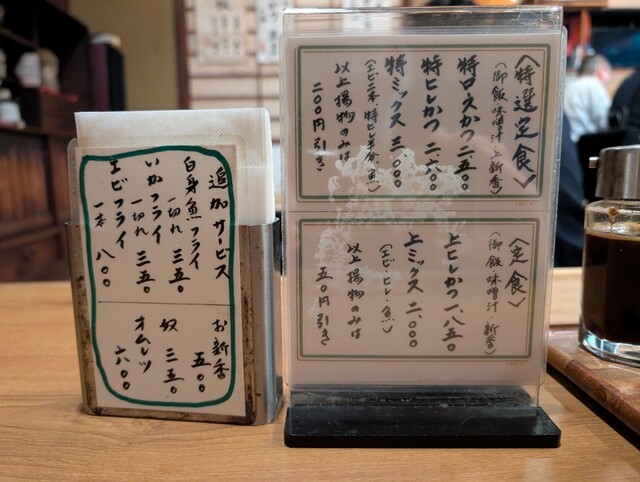 〈特選定食〉
(御飯・味噌汁・上新香)
特ロースかつ 二、五〇〇
特ヒレかつ 二、六〇〇
特ミックス 三、〇〇〇
(エビ二本、特ヒレ半分、魚)
以上揚物のみは
二〇〇円引き
〈定食〉
(御飯・味噌汁・新香)
上ヒレかつ 一、八五〇
上ミックス 二、〇〇〇
(エビ・ヒレ・魚)
以上揚物のみは
五〇円引き
追加サービス
白身魚フライ
一切れ 三五〇
いかフライ
一切れ 三五〇
エビフライ
一本 八〇〇
お新香 五〇〇
奴 三五〇
オムレツ 六〇〇